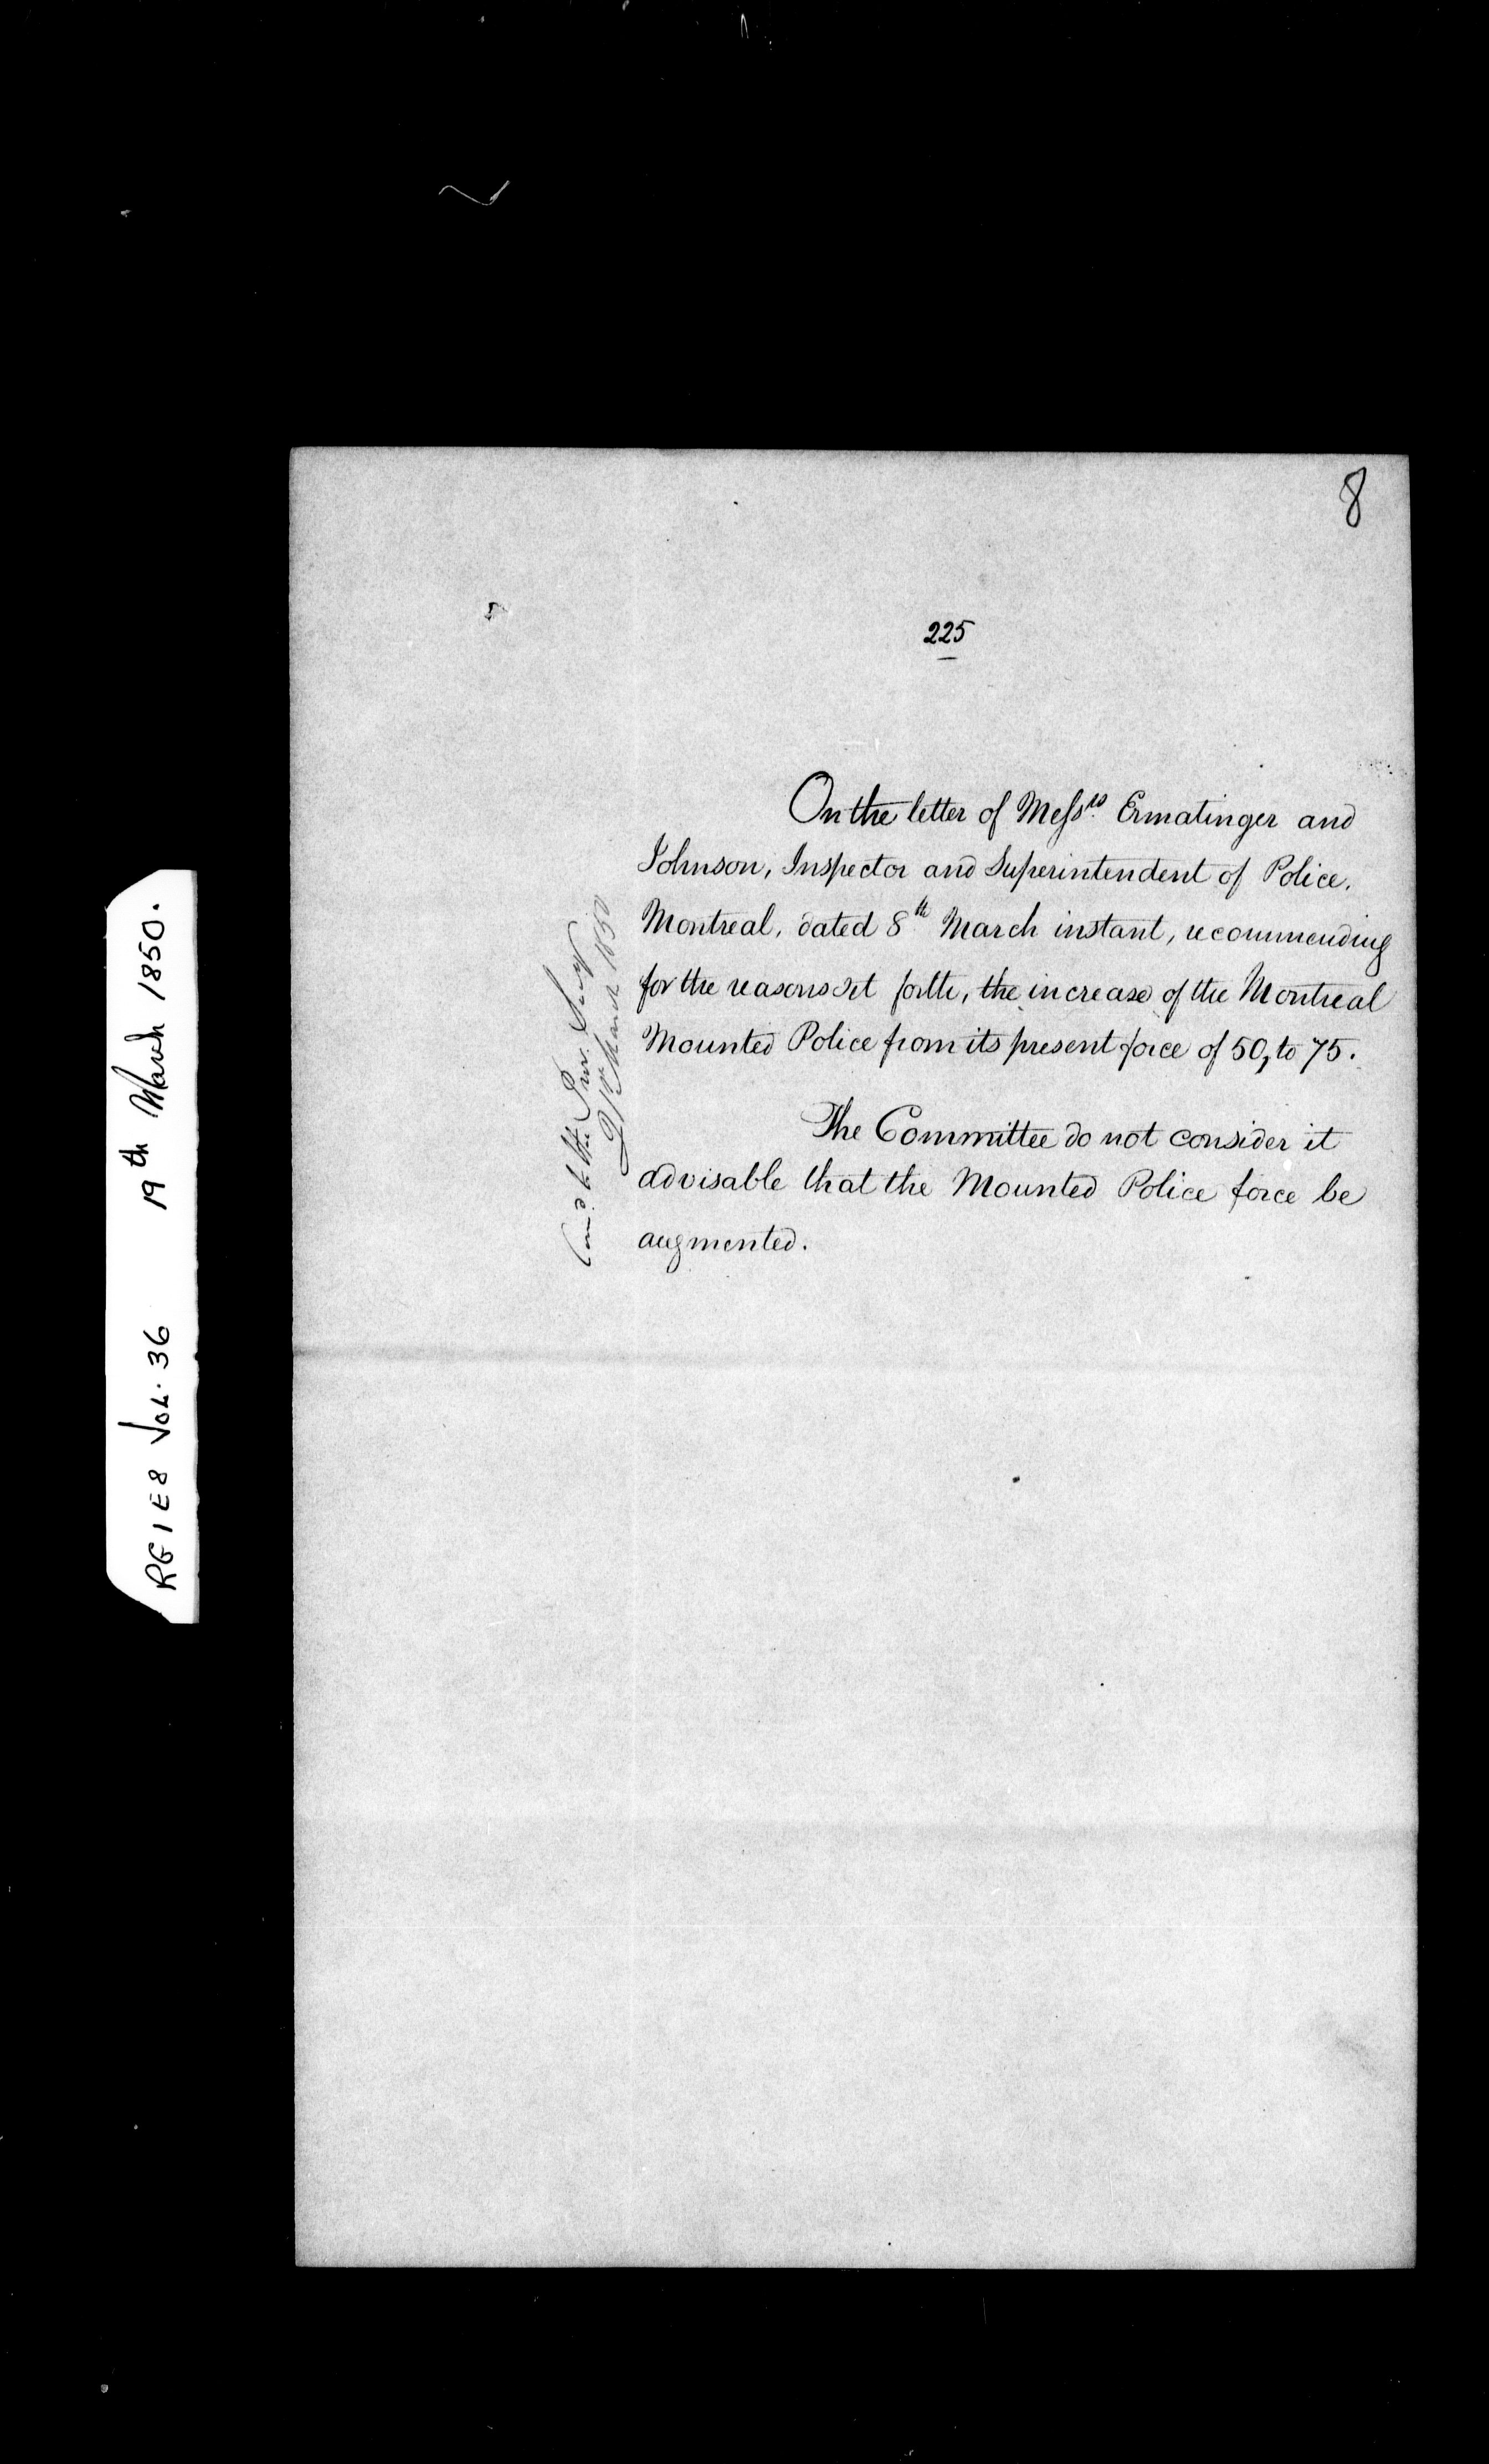 8
225
On the letter of Messrs. Ermatinger and
Johnson, Inspector and Superintendent of Police,
Montreal, dated 8th March instant, recommending
for the reasons set forth, the increase of the Montreal
Mounted Police from its present force of 50, to 75.
The Committee do not consider it
advisable that the Mounted Police force be
augmented.
to the Prov. Secy
March 1850
RG1E8 Vol. 36 19th March 1850.